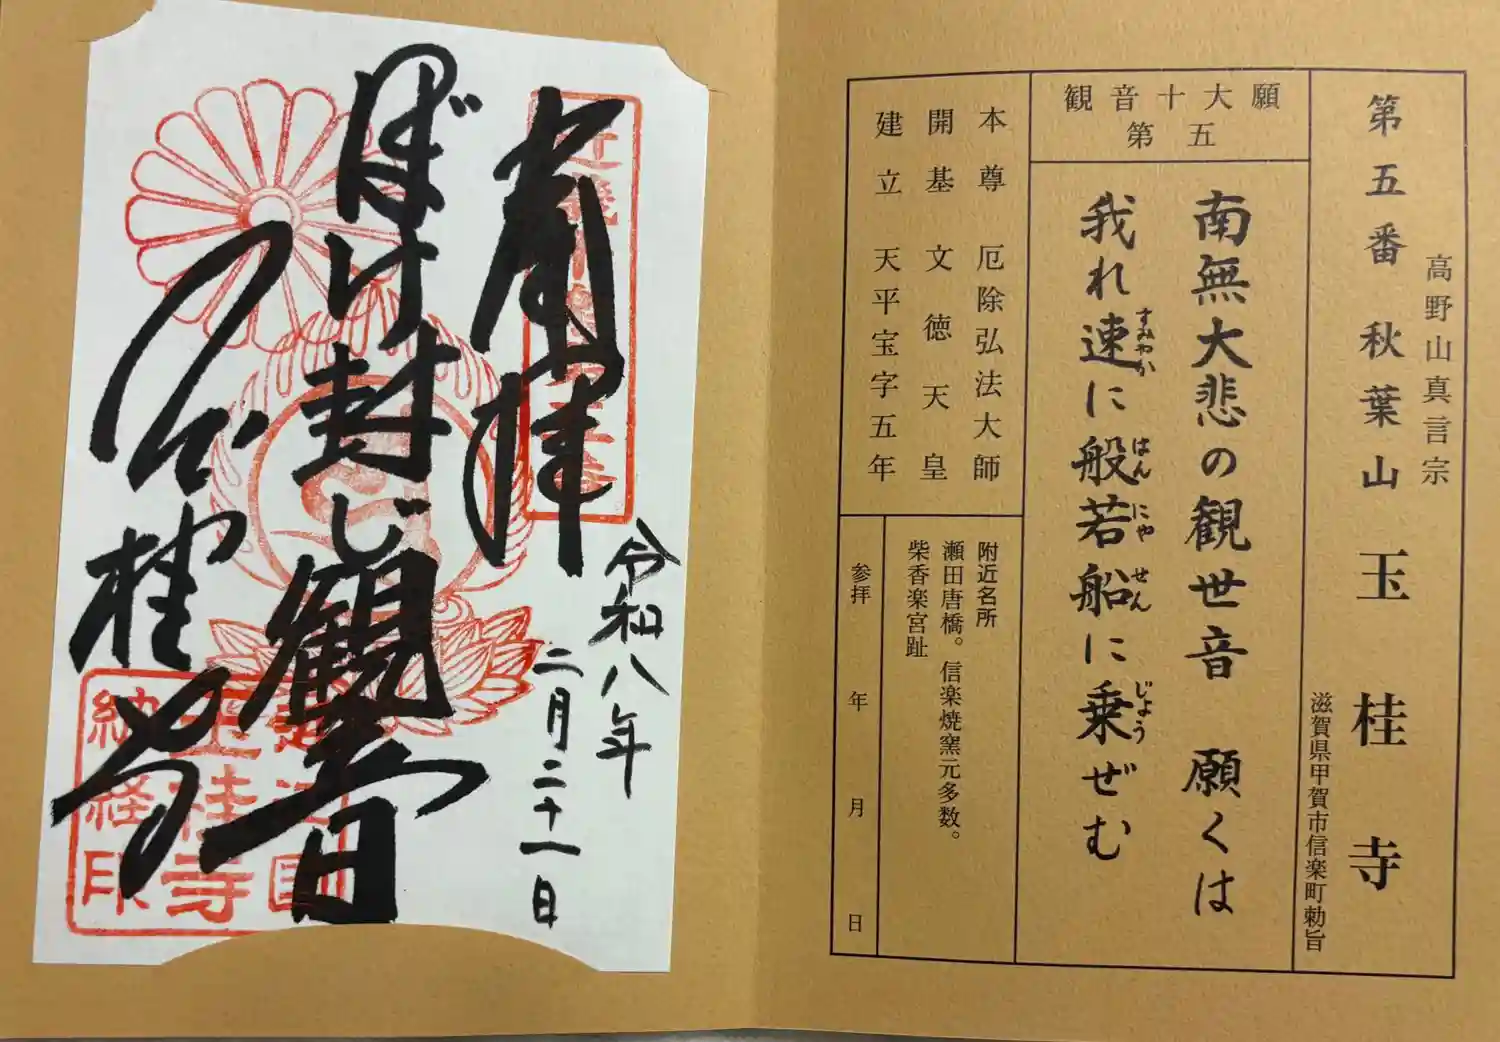 第五番 秋葉山 玉桂寺
高野山真言宗
滋賀県甲賀市信楽町勅旨
観音十大願
第五
南無大悲の観世音 願くは
我れ速に般若船に乗ぜむ
すみやか
はんにゃせん
じょう
本尊 厄除弘法大師
開基 文徳天皇
建立 天平宝字五年
附近名所
瀬田唐橋。信楽焼窯元多数。
柴香楽宮趾
参拝 年 月 日
奉拝
令和八年
二月二十一日
ぼけ封じ観音
玉桂寺
納経印